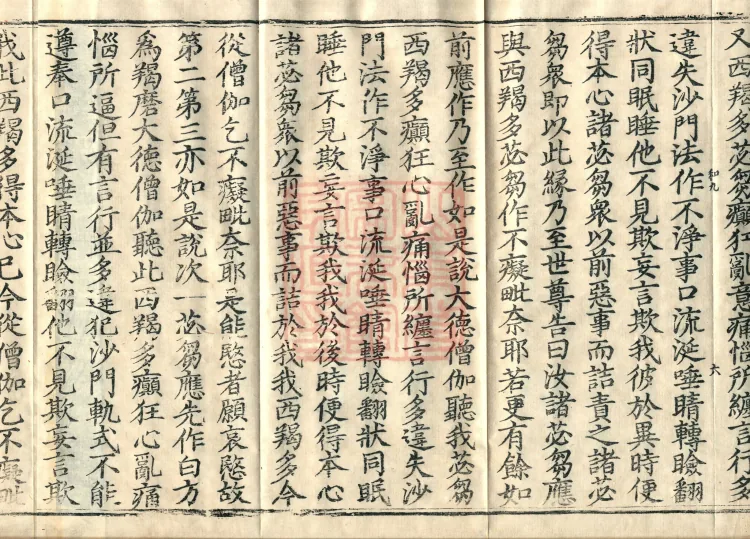 又西羯多苾芻癲狂亂意痛惱所纏言行多
違失沙門法作不淨事口流涎唾睛轉瞼翻
狀同眠睡他不見欺妄言欺我彼於異時便
得本心諸苾芻衆以前惡事而詰責之諸苾
芻衆即以此緣乃至世尊告曰汝諸苾芻應
與西羯多苾芻作不癡毗奈耶若更有餘如
前應作乃至作如是說大德僧伽聽我苾芻
西羯多癲狂心亂痛惱所纏言行多違失沙
門法作不淨事口流涎唾睛轉瞼翻狀同眠
睡他不見欺妄言欺我我於後時便得本心
諸苾芻衆以前惡事而詰於我我西羯多今
從僧伽乞不癡毗奈耶是能愍者願哀愍故
第二第三亦如是說次一苾芻應先作白方
為羯磨大德僧伽聽此西羯多癲狂心亂痛
惱所逼但有言行並多違犯沙門軌式不能
遵奉口流涎唾睛轉瞼翻他不見欺妄言欺
我此西羯多得本心已今從僧伽乞不癡毗